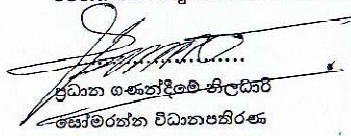 ප්‍රධාන ගණන්දීමේ නිලධාරී
සෝමරත්න විධානපතිරණ